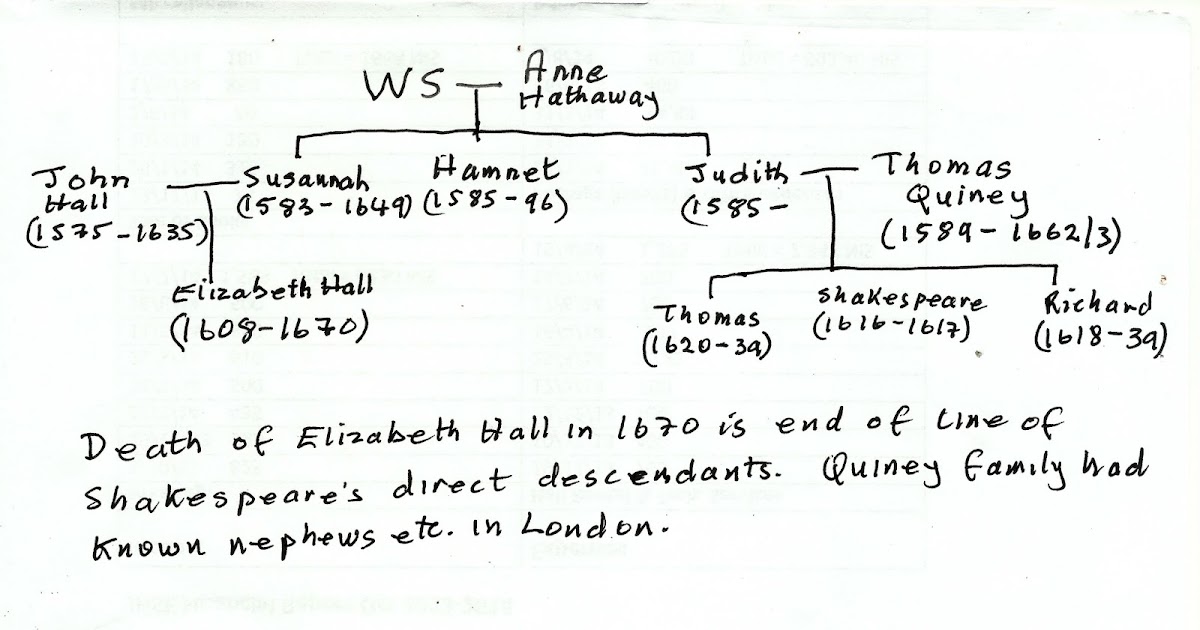 WS
Anne
Hathaway
John
Hall
(1575-1635)
Susannah
(1583-1649)
Hamnet
(1585-96)
Judith
(1585-
Thomas
Quiney
(1589-1662/3)
Elizabeth Hall
(1608-1670)
Thomas
(1620-39)
Shakespeare
(1616-1617)
Richard
(1618-39)
Death of Elizabeth Hall in 1670 is end of line of
Shakespeare's direct descendants. Quiney family had
known nephews etc. in London.